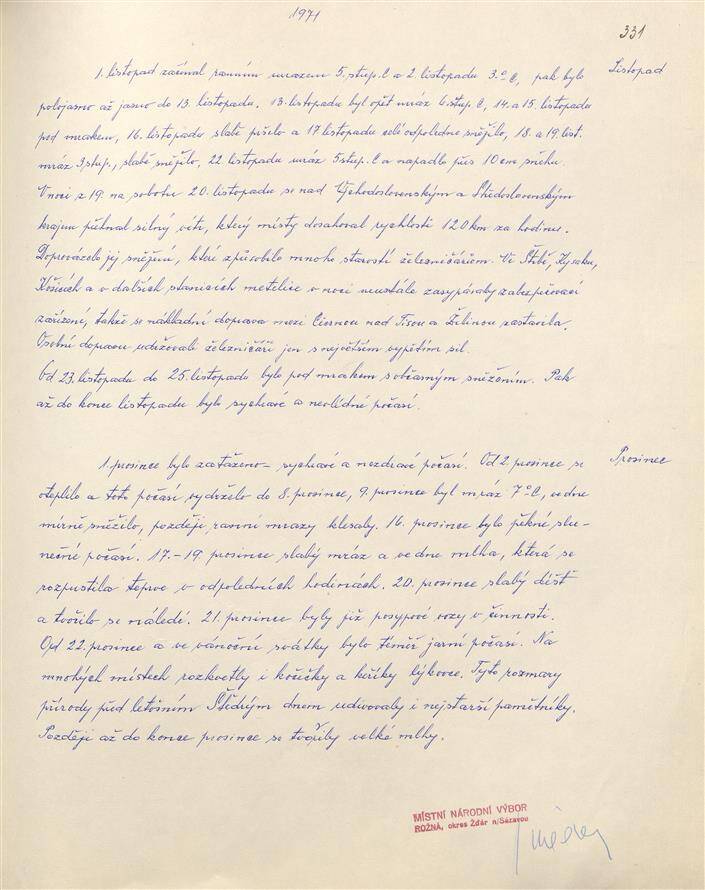 1971
331
Listopad
1. listopad začínal ranním mrazem 5. stup. C a 2. listopadu 3.° C, pak bylo
polojasno až jasno do 13. listopadu. 13. listopadu byl opět mráz 6 stup. C, 14. a 15. listopadu
pod mrakem, 16. listopadu slabě pršelo a 17 listopadu celé odpoledne sněžilo, 18. a 19. list.
mráz 3 stup., slabě sněžilo, 22 listopadu mráz 5 stup. C a napadlo přes 10 cm sněhu.
V noci z 19. na sobotu 20. listopadu se nad Východoslovenským a Středoslovenským
krajem přehnal silný vítr, který místy dosahoval rychlosti 120 km za hodinu.
Doprovázelo jej sněžení, které způsobilo mnoho starostí železničářům. Ve Štrbě, Kysaku,
Košicích a v dalších stanicích metelice v noci neustále zasypávaly zabezpečovací
zařízení, takže se nákladní doprava mezi Čiernou nad Tisou a Žilinou zastavila.
Osobní dopravu udržovali železničáři jen s největším vypětím sil.
Od 23. listopadu do 25. listopadu bylo pod mrakem s občasným sněžením. Pak
až do konce listopadu bylo sychravé a nevlídné počasí.
Prosinec
1. prosince bylo zataženo - sychravé a nezdravé počasí. Od 2. prosince se
oteplilo a toto počasí vydrželo do 8. prosince, 9. prosince byl mráz 7° C, ve dne
mírně sněžilo, později ranní mrazy klesaly. 16. prosince bylo pěkné slu-
nečné počasí. 17. - 19. prosince slabý mráz a ve dne mlha, která se
rozpustila teprve v odpoledních hodinách. 20. prosince slabý déšť
a tvořilo se náledí. 21. prosince byly již posypové vozy v činnosti.
Od 22. prosince a ve vánoční svátky bylo téměř jarní počasí. Na
mnohých místech rozkvetly i kočičky a keříky lýkovce. Tyto rozmary
přírody před letošním Štědrým dnem udivovaly i nejstarší pamětníky.
Později až do konce prosince se tvořily velké mlhy.
MÍSTNÍ NÁRODNÍ VÝBOR
ROŽNÁ, okres Žďár n/Sázavou